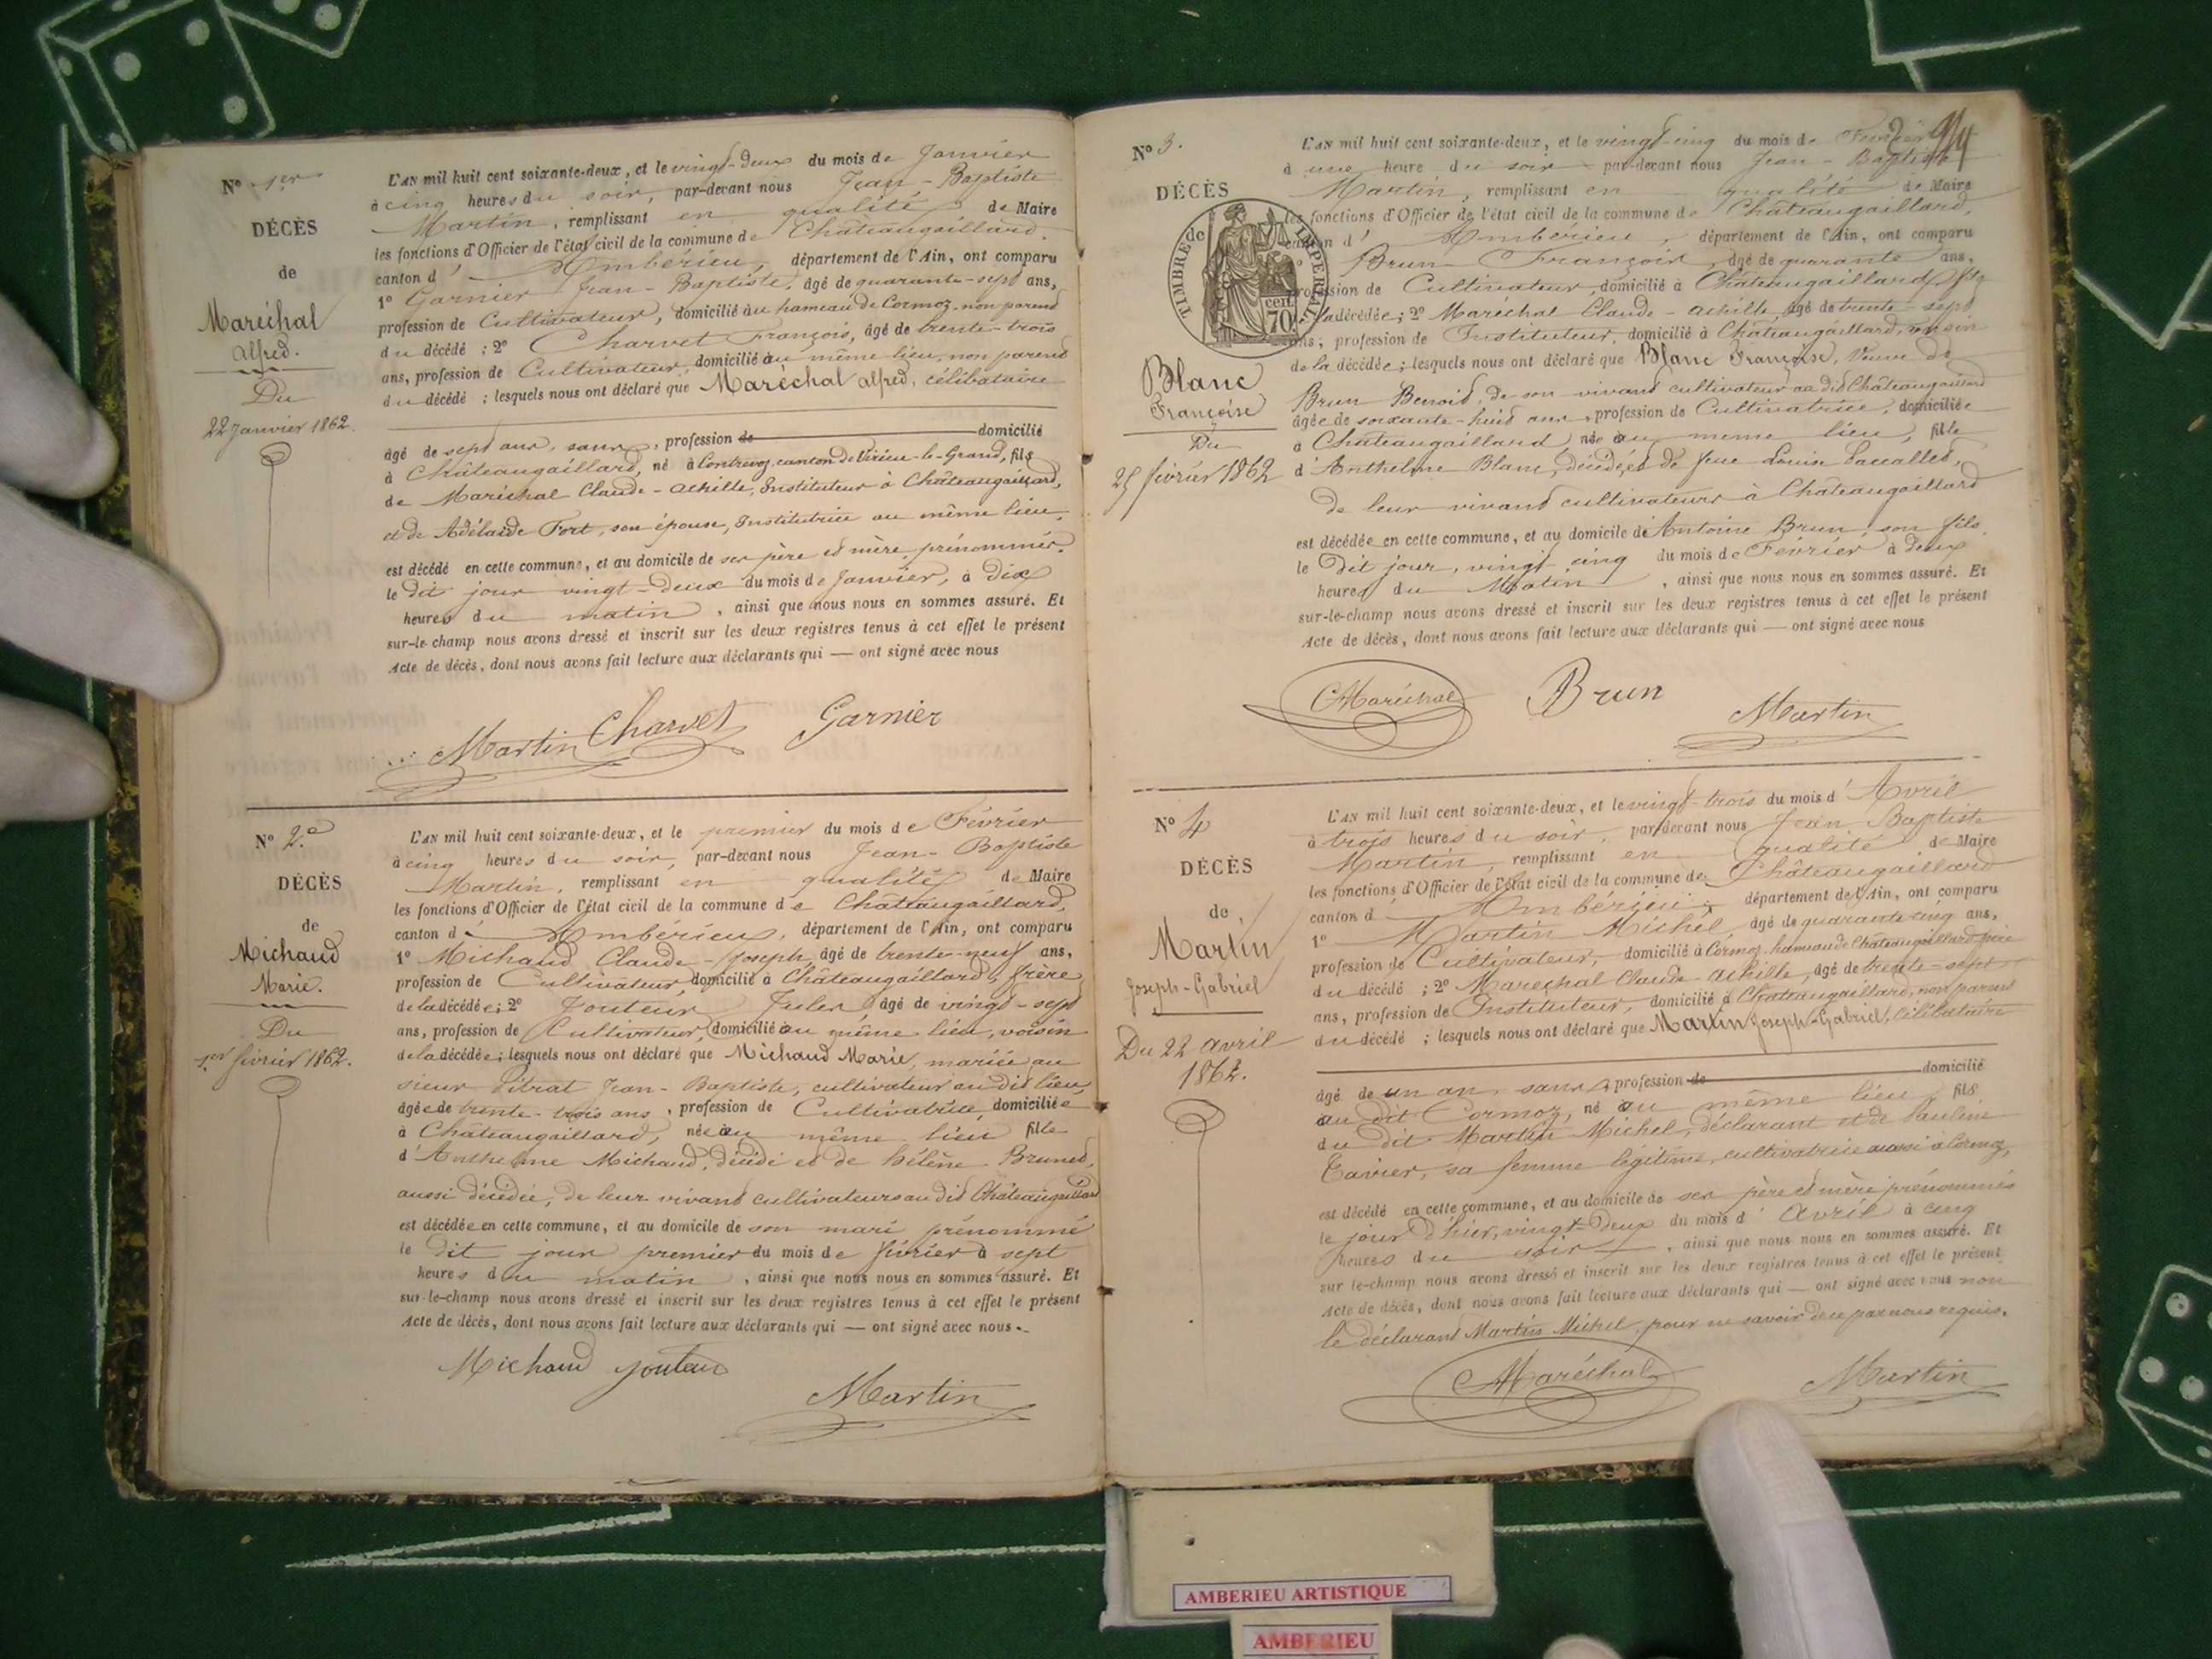 N° 1er
DÉCÈS
de
Maréchal
alfred.
Du
22 Janvier 1862.
L'AN mil huit cent soixante-deux, et le vingt-deux du mois de Janvier
à cinq heures du soir, par-devant nous Jean-Baptiste
Martin, remplissant en qualité de Maire
les fonctions d'Officier de l'état civil de la commune de Châteaugaillard,
canton d'Ambérieu, département de l'Ain, ont comparu
1° Garnier Jean-Baptiste, âgé de quarante-sept ans,
profession de Cultivateur, domicilié au hameau de Cormoz, non parent
du décédé ; 2° Charvet François, âgé de trente-trois
ans, profession de Cultivateur, domicilié au même lieu, non parent
du décédé ; lesquels nous ont déclaré que Maréchal alfred, célibataire
âgé de sept ans, sans profession de domicilié
à Châteaugaillard, né à Contrevoz, canton de Virieu-le-Grand, fils
de Maréchal Claude-achille, Instituteur à Châteaugaillard,
et de Adélaïde Fort, son épouse, Institutrice au même lieu,
est décédé en cette commune, et au domicile de ses père et mère prénommés.
le dit jour vingt-deux du mois de Janvier, à dix
heures du matin, ainsi que nous nous en sommes assuré. Et
sur-le-champ nous avons dressé et inscrit sur les deux registres tenus à cet effet le présent
Acte de décès, dont nous avons fait lecture aux déclarants qui — ont signé avec nous
Martin Charvet Garnier
N° 2e
DÉCÈS
de
Michaud
Marie.
Du
1er février 1862.
L'AN mil huit cent soixante-deux, et le premier du mois de Février
à cinq heures du soir, par-devant nous Jean-Baptiste
Martin, remplissant en qualité de Maire
les fonctions d'Officier de l'état civil de la commune de Châteaugaillard,
canton d'Ambérieu, département de l'Ain, ont comparu
1° Michaud Claude-Joseph, âgé de trente-neuf ans,
profession de Cultivateur, domicilié à Châteaugaillard, frère
de la décédée ; 2° Jouteur Jules, âgé de vingt-sept
ans, profession de Cultivateur, domicilié au même lieu, voisin
de la décédée ; lesquels nous ont déclaré que Michaud Marie, mariée au
sieur Jean-Baptiste, cultivateur au dit lieu,
âgée de trente-trois ans, profession de Cultivatrice, domiciliée
à Châteaugaillard, née au même lieu fille
d'Anthelme Michaud, décédé et de hélène Brunet,
aussi décédée, de leur vivant cultivateurs au dit Châteaugaillard
est décédée en cette commune, et au domicile de son mari prénommé
le dit jour premier du mois de février à sept
heures du matin, ainsi que nous nous en sommes assuré. Et
sur-le-champ nous avons dressé et inscrit sur les deux registres tenus à cet effet le présent
Acte de décès, dont nous avons fait lecture aux déclarants qui — ont signé avec nous.
Michaud Jouteur
Martin
N° 3.
DÉCÈS
de
TIMBRE IMPÉRIAL
70 cent.
Blanc
Françoise
Du
25 février 1862
L'AN mil huit cent soixante-deux, et le vingt-cinq du mois de Février
à une heure du soir par-devant nous Jean-Baptiste
Martin, remplissant en qualité de Maire
les fonctions d'Officier de l'état civil de la commune de Châteaugaillard,
canton d'Ambérieu, département de l'Ain, ont comparu
1° Brun François, âgé de quarante ans,
profession de Cultivateur, domicilié à Châteaugaillard, fils
de la décédée ; 2° Maréchal Claude-achille, âgé de trente-sept
ans, profession de Instituteur, domicilié à Châteaugaillard, voisin
de la décédée ; lesquels nous ont déclaré que Blanc Françoise, Veuve de
Brun Benoit, de son vivant cultivateur au dit Châteaugaillard
âgée de soixante-huit ans, profession de Cultivatrice, domiciliée
à Châteaugaillard, née au même lieu, fille
d'Anthelme Blanc, décédé, et de feue Louise
de leur vivant cultivateurs à Châteaugaillard
est décédée en cette commune, et au domicile de Antoine Brun son fils,
le dit jour, vingt-cinq du mois de Février à deux
heures du Matin, ainsi que nous nous en sommes assuré. Et
sur-le-champ nous avons dressé et inscrit sur les deux registres tenus à cet effet le présent
Acte de décès, dont nous avons fait lecture aux déclarants qui — ont signé avec nous
CMaréchal Brun Martin
N° 4
DÉCÈS
de
Martin
Joseph-Gabriel
Du 22 avril
1862.
L'AN mil huit cent soixante-deux, et le vingt-trois du mois d'Avril
à trois heures du soir, par-devant nous Jean Baptiste
Martin, remplissant en qualité de Maire
les fonctions d'Officier de l'état civil de la commune de Châteaugaillard
canton d'Ambérieu, département de l'Ain, ont comparu
1° Martin Michel, âgé de quarante-cinq ans,
profession de Cultivateur, domicilié à Cormoz, hameau de Châteaugaillard, père
du décédé ; 2° Maréchal Claude-achille, âgé de trente-sept
ans, profession de Instituteur, domicilié à Châteaugaillard, non parent
du décédé ; lesquels nous ont déclaré que Martin Joseph-Gabriel, célibataire
âgé de un an, sans profession de domicilié
au dit Cormoz, né au même lieu, fils
du dit Martin Michel, déclarant et de Pauline
Tavier, sa femme légitime, cultivatrice aussi à Cormoz,
est décédé en cette commune, et au domicile de ses père et mère prénommés
le jour d'hier, vingt-deux du mois d'Avril à cinq
heures du soir, ainsi que nous nous en sommes assuré. Et
sur-le-champ nous avons dressé et inscrit sur les deux registres tenus à cet effet le présent
Acte de décès, dont nous avons fait lecture aux déclarants qui — ont signé avec nous non
le déclarant Martin Michel, pour ne savoir de ce par nous requis.
CMaréchal Martin
AMBERIEU ARTISTIQUE
AMBERIEU